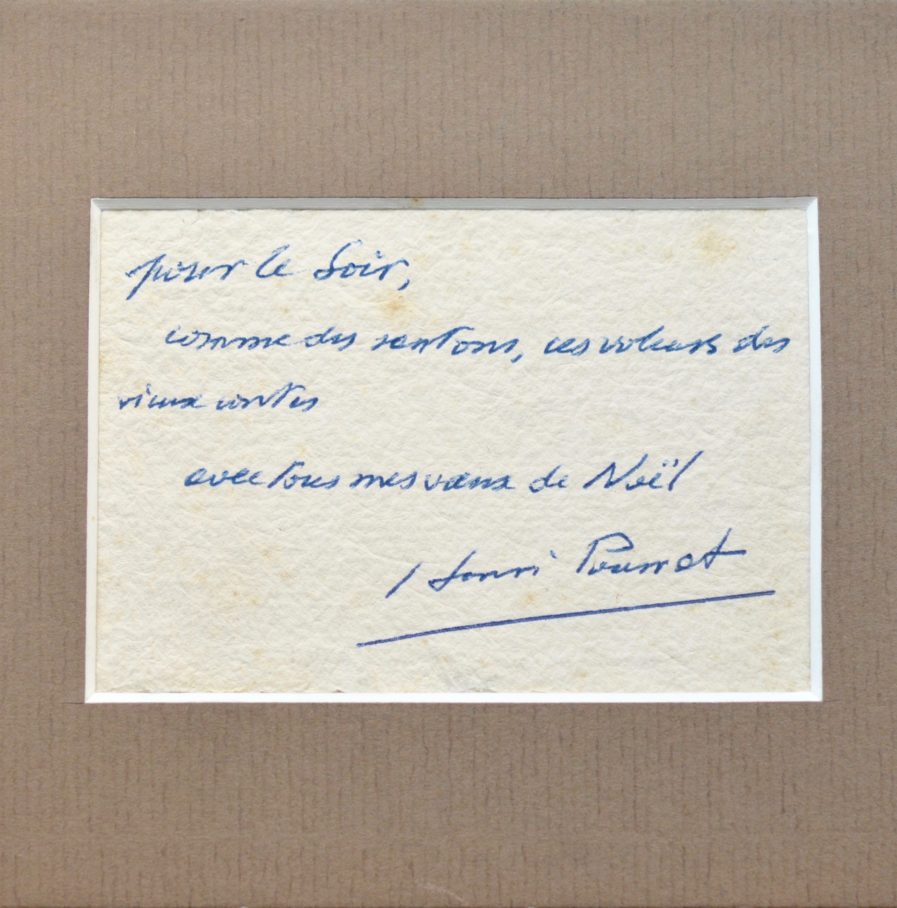 pour le Soir,
comme des santons, ces voleurs des
vieux contes
avec tous mes vœux de Noël
Henri Pourrat